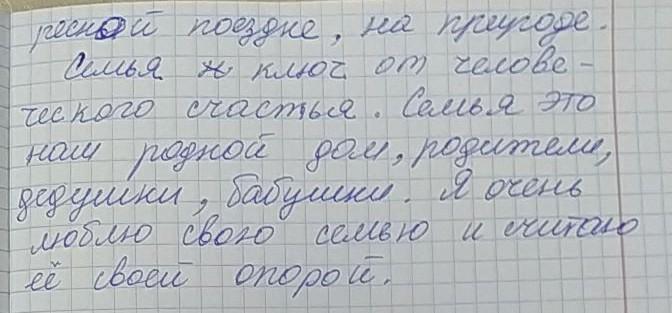 ресной поездке, на природе.
Семья ж ключ от челове-
ческого счастья. Семья это
наш родной дом, родители,
дедушки, бабушки. Я очень
люблю свою семью и считаю
её своей опорой.